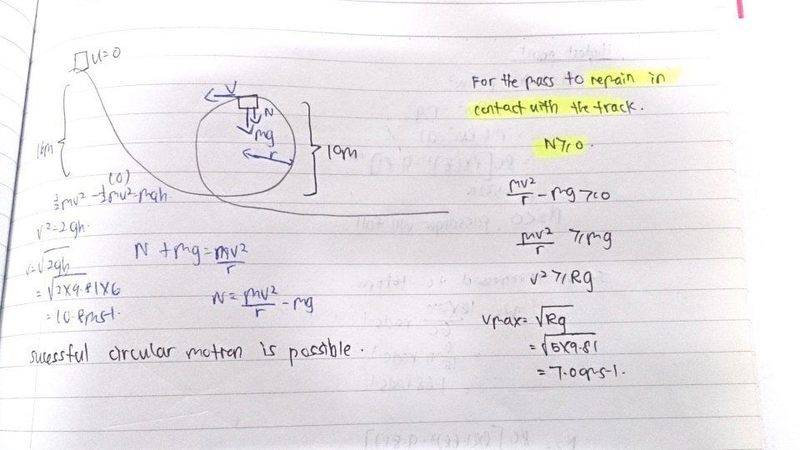 u=0
16m
V
N
mg
r
10m
(0)
½mv²-½mu²=mgh
v²=2gh
v=√2gh
=√2x9.81x6
=10.8ms-1.
N+mg=mv²/r
N=mv²/r-mg
sucessful circular motion is possible.
For the mass to remain in
contact with the track.
N⩾0.
mv²/r-mg⩾0
mv²/r ⩾mg
v²⩾Rg
Vmax=√Rg
=√5x9.81
=7.0ms-1.